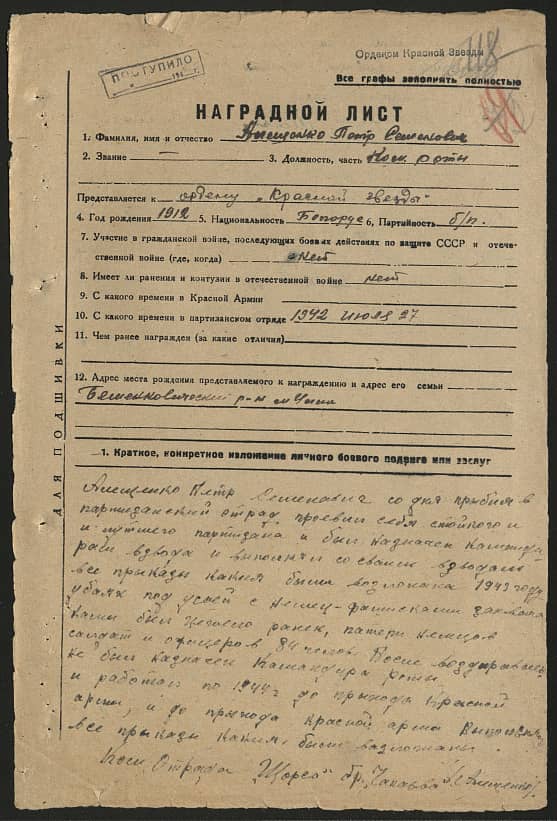 Орденом Красной Звезды
118
ПОСТУПИЛО
Все графы заполнять полностью
НАГРАДНОЙ ЛИСТ
1. Фамилия, имя и отчество Алещенко Петр Семенович
2. Звание — 3. Должность, часть Ком. роты
Представляется к ордену „Красной звезды"
4. Год рождения 1912 5. Национальность Белорус 6, Партийность б/п.
7. Участие в гражданской войне, последующих боевых действиях по защите СССР и отече-
ственной войне (где, когда) нет
8. Имеет ли ранения и контузии в отечественной войне нет
9. С какого времени в Красной Армии
10. С какого времени в партизанском отряде 1942 июля 27
11. Чем ранее награжден (за какие отличия)
12. Адрес места рождения представляемого к награждению и адрес его семьи
Бешенковический р-н м Улла
ДЛЯ ПОДШИВКИ
1. Краткое, конкретное изложение личного боевого подвига или заслуг
Алещенко Петр Семенович со дня прибыия в
партизанский отряд проевил себя стойкого и
и лутшего партизана и был назначен Команди-
ром взвода и выполнял со своим взводам
все приказы какия были возложана 1943 году
под с немец-фашисками захвата
ками был ранен, патери немцов
салдат и офицеров 84 челов. После
не был назначен Командира роты
и работал по 1944 г до прыхода Красной
арми, и до прыхода Красной арми
все приказы какия были возложаны.
Ком Отрада „Щорса" бр. Чапаева